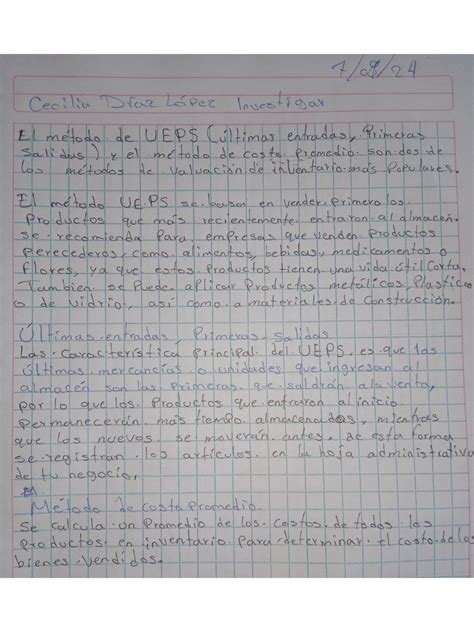 7/08/24
Cecilia Díaz López Investigar
El método de UEPS (últimas entradas, Primeras
Salidas) y el método de costo promedio son dos de
los métodos de valuación de inventario más populares.
El método UEPS se basa en vender primero los
Productos que más recientemente entraron al almacén.
se recomienda para empresas que venden productos
perecederos, como alimentos, bebidas, medicamentos o
flores, ya que estos productos tienen una vida útil corta.
También se puede aplicar Productos metálicos, Plástico
o de vidrio, así como a materiales de construcción.
Últimas entradas, Primeras salidas
Las característica principal del UEPS, es que las
últimas mercancías o unidades que ingresan al
almacén son las primeras que saldrán a la venta,
por lo que los Productos que entraron al inicio
Permanecerán más tiempo almacenados, mientras
que los nuevos se moverán antes, de esta forma
se registran los artículos en la hoja administrativa
de tu negocio.
Método de costo Promedio.
Se calcula un Promedio de los costos de todos los
productos en inventario para determinar el costo de los
bienes vendidos.